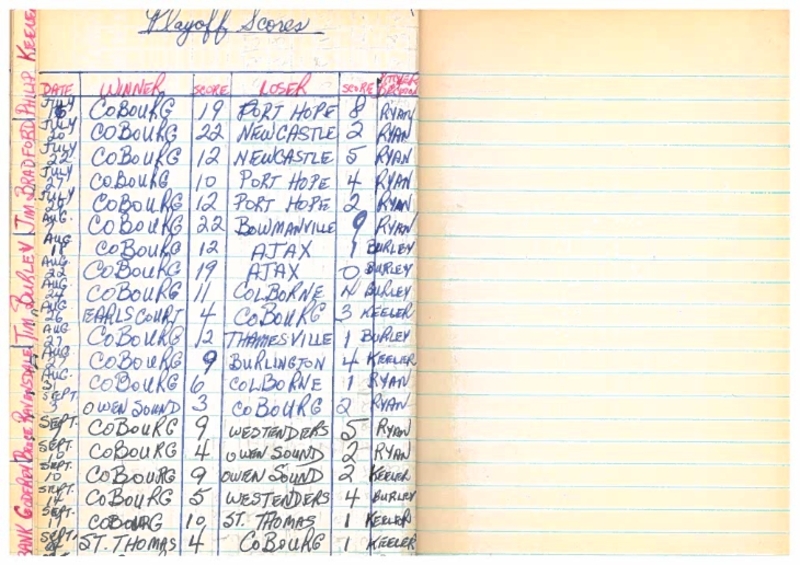 Playoff Scores
DATE WINNER SCORE LOSER SCORE PITCHER
JULY COBOURG 19 PORT HOPE 8 RYAN
JULY 20 COBOURG 22 NEWCASTLE 2 RYAN
JULY 22 COBOURG 12 NEWCASTLE 5 RYAN
JULY 27 COBOURG 10 PORT HOPE 4 RYAN
JULY COBOURG 12 PORT HOPE 2 RYAN
AUG. COBOURG 22 BOWMANVILLE 9 RYAN
AUG COBOURG 12 AJAX 1 BURLEY
AUG. 22 COBOURG 19 AJAX 0 BURLEY
AUG. 24 COBOURG 11 COLBORNE 4 BURLEY
AUG 26 EARLSCOURT 4 COBOURG 3 KEELER
AUG 27 COBOURG 12 THAMESVILLE 1 BURLEY
AUG. COBOURG 9 BURLINGTON 4 KEELER
AUG. 31 COBOURG 6 COLBORNE 1 RYAN
SEPT 3 OWEN SOUND 3 COBOURG 2 RYAN
SEPT. COBOURG 9 WESTENDERS 5 RYAN
SEPT. 10 COBOURG 4 OWEN SOUND 2 RYAN
SEPT. 10 COBOURG 9 OWEN SOUND 2 KEELER
SEPT. 14 COBOURG 5 WESTENDERS 4 BURLEY
SEPT. 17 COBOURG 10 ST. THOMAS 1 KEELER
SEPT. ST. THOMAS 4 COBOURG 1 KEELER
GODFREY BRUCE TIM BURLEY JIM BRADFORD PHILIP KEELER